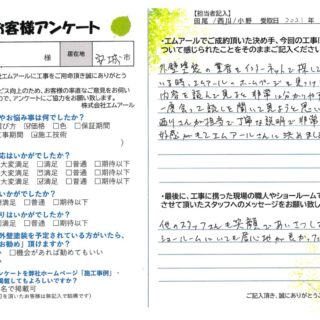 お客様アンケート
様
居在地
安城市
社エムアールに工事をご用命頂き誠にありがとう
ービス向上のため、お客様の率直なご意見をお伺い
ので、アンケートにご協力をお願い致します。
株式会社エムアール
やお悩み事は何でしたか?
び方 ☑価格 □色 □保証期間
工事期間 ☑施工技術
応はいかがでしたか?
大変満足 ☑満足 □普通 □期待以下
大変満足 □満足 □普通 □期待以下
はいかがでしたか?
満足 □普通 □期待以下
満足 □普通 □期待以下
外壁塗装を予定されている方がいたら、
お勧め」頂けますか?
□機会があれば勧めてもいい
い
ンケートを弊社ホームページ「施工事例」・
掲載してもよろしいですか?
名で掲載可
を頂いたお客様は無記入で結構です)
【担当者記入】
田尾/西川/小野 受取日 2021年
・エムアールでご成約頂いた決め手、今回の工事に
ついて感じられたことをそのままご記入ください
外壁塗装の業者をインターネットで探して
いる時、エムアールのホームページを見つけ
内容を読んで見ると非常に分かりやす
一度会って話しを聞いて見ようと思い
西川さんが担当で丁寧な説明で非常
好感がもてエムアールさんに決めまし
・最後に、工事に携った現場の職人やショールームで
させて頂いたスタッフへのメッセージをお願い致し
他のスタッフさんも笑顔であいさつして
ショールームにいても居心地が良かった
ご記入頂き、誠にありがとう